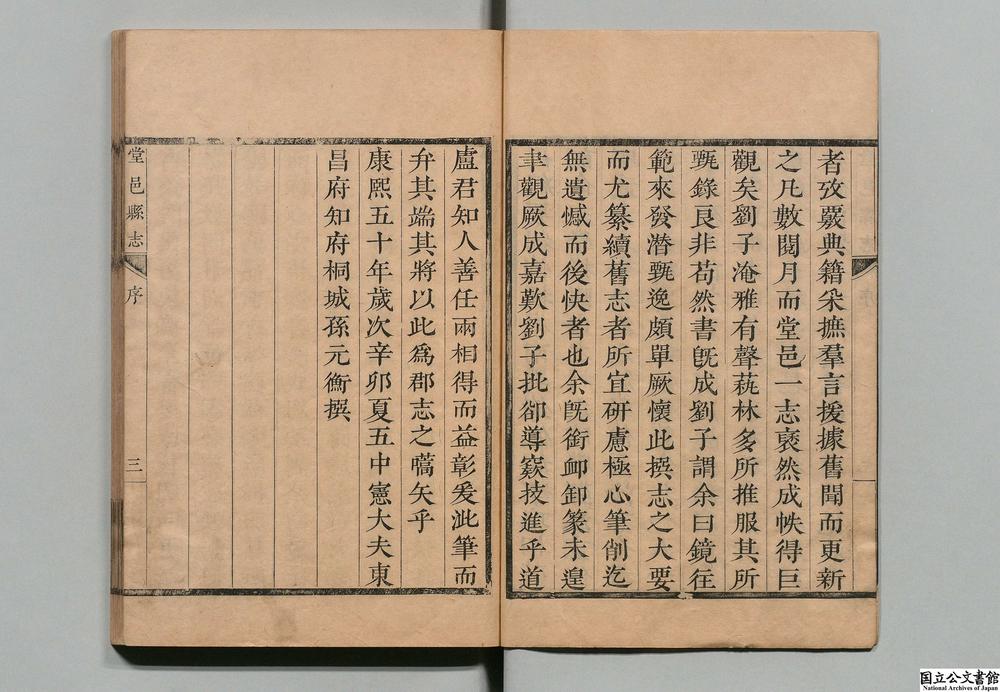 者攷覈典籍采摭羣言援據舊聞而更新
之凡數閱月而堂邑一志裦然成帙得巨
觀矣劉子淹雅有聲蓺林多所推服其所
甄錄良非苟然書旣成劉子謂余曰鏡往
範來發潛甄逸頗單厥懷此撰志之大要
而尤纂續舊志者所宜研慮極心筆削迄
無遺憾而後快者也余旣銜卹卸篆未遑
聿觀厥成嘉歎劉子批卻導窾技進乎道
盧君知人善任兩相得而益彰爰泚筆而
弁其端其將以此爲郡志之嚆矢乎
康熙五十年歲次辛卯夏五中憲大夫東
昌府知府桐城孫元衡撰
堂邑縣志
序
三
国立公文書館
National Archives of Japan